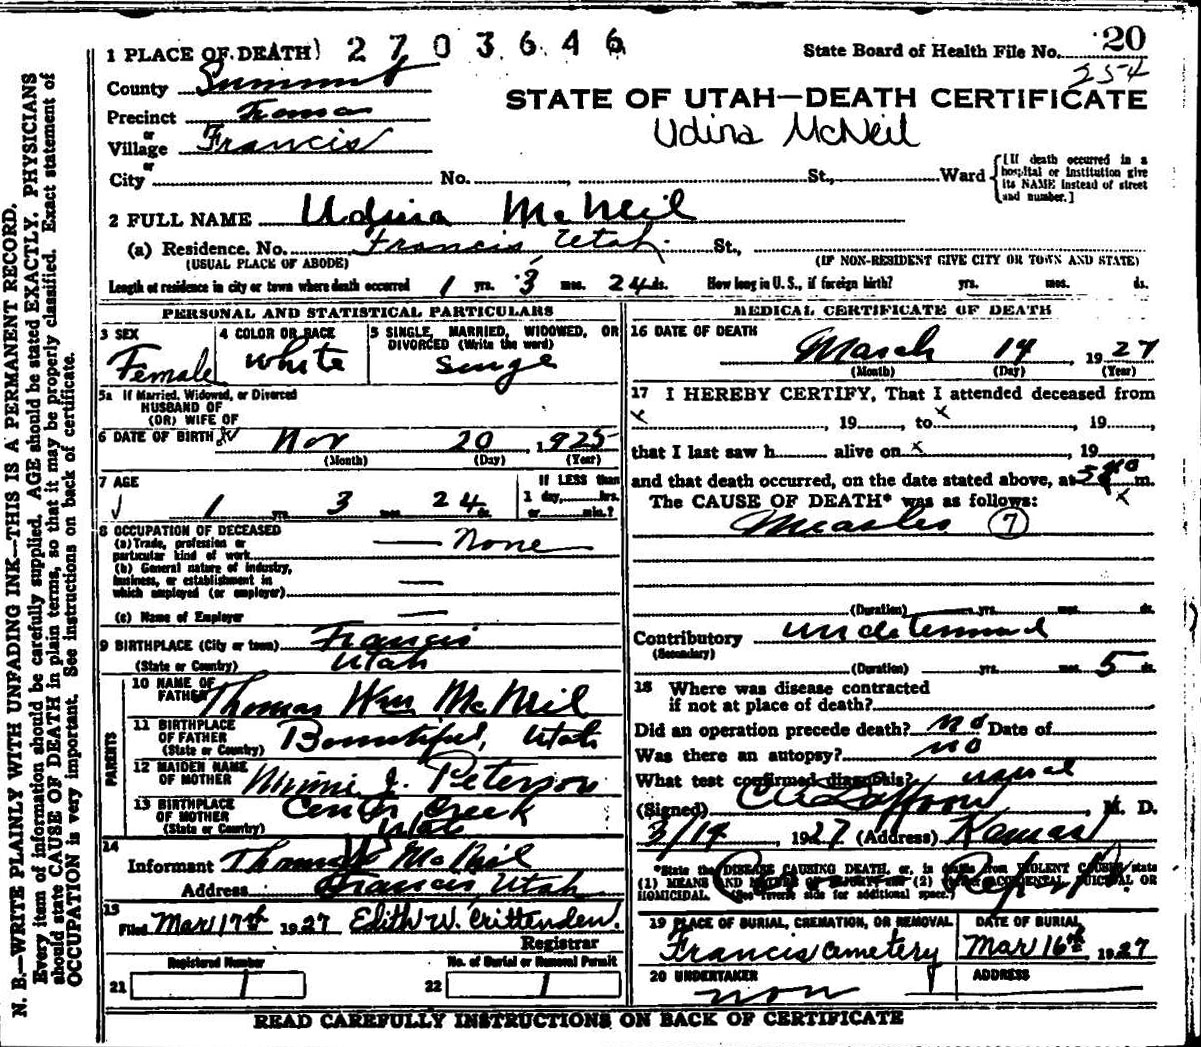 1 PLACE OF DEATH) 2703646
State Board of Health File No. 20
254
County Summit
STATE OF UTAH—DEATH CERTIFICATE
Precinct
Udina McNeil
or
Village Francis
or
City No. , St., Ward {[If death occurred in a hospital or institution give its NAME instead of street and number.]
2 FULL NAME Udina McNeil
(a) Residence. No. Francis, Utah. St.,
(USUAL PLACE OF ABODE) (IF NON-RESIDENT GIVE CITY OR TOWN AND STATE)
Length of residence in city or town where death occurred 1 yrs. 3 mos. 24 ds. How long in U. S., if foreign birth? yrs. mos. ds.
PERSONAL AND STATISTICAL PARTICULARS
3 SEX 4 COLOR OR RACE 5 SINGLE, MARRIED, WIDOWED, OR DIVORCED (Write the word)
Female white singe
5a If Married, Widowed, or Divorced
HUSBAND OF
(OR) WIFE OF
6 DATE OF BIRTH Nov 20 1925
(Month) (Day) (Year)
7 AGE 1 yrs. 3 mos. 24 ds. If LESS than 1 day, hrs. or min.?
8 OCCUPATION OF DECEASED
(a) Trade, profession or particular kind of work None
(b) General nature of industry, business, or establishment in which employed (or employer)
(c) Name of Employer
9 BIRTHPLACE (City or town) Francis
(State or Country) Utah
PARENTS
10 NAME OF FATHER Thomas Wm McNeil
11 BIRTHPLACE OF FATHER (State or Country) Bountiful, Utah
12 MAIDEN NAME OF MOTHER Minnie J. Peterson
13 BIRTHPLACE OF MOTHER (State or Country) Center Creek Utah
14 Informant Thomas W McNeil
Address Francis, Utah
15 Filed Mar 17th 1927 Edith W. Crittenden.
Registrar
Registered Number No. of Burial or Removal Permit
21 1 22 1
MEDICAL CERTIFICATE OF DEATH
16 DATE OF DEATH
March 14, 1927
(Month) (Day) (Year)
17 I HEREBY CERTIFY, That I attended deceased from
x , 19 , to x , 19 ,
that I last saw h alive on x , 19
and that death occurred, on the date stated above, at m.
The CAUSE OF DEATH* was as follows:
Measles (7)
(Duration) yrs. mos. ds.
Contributory undetermined
(Secondary)
(Duration) yrs. mos. 5 ds.
18 Where was disease contracted
if not at place of death?
Did an operation precede death? no Date of
Was there an autopsy? no
What test confirmed diagnosis? usual
(Signed) , M. D.
3/14 1927 (Address) Kamas
*State the DISEASE CAUSING DEATH, or, in deaths from VIOLENT CAUSES, state (1) MEANS AND NATURE OF INJURY and (2) whether ACCIDENTAL, SUICIDAL OR HOMICIDAL. (See reverse side for additional space.)
19 PLACE OF BURIAL, CREMATION, OR REMOVAL DATE OF BURIAL
Francis Cemetery Mar 16th 1927
20 UNDERTAKER ADDRESS
non
READ CAREFULLY INSTRUCTIONS ON BACK OF CERTIFICATE
N. B.—WRITE PLAINLY WITH UNFADING INK—THIS IS A PERMANENT RECORD.
Every item of information should be carefully supplied. AGE should be stated EXACTLY. PHYSICIANS
should state CAUSE OF DEATH in plain terms, so that it may be properly classified. Exact statement of
OCCUPATION is very important. See instructions on back of certificate.